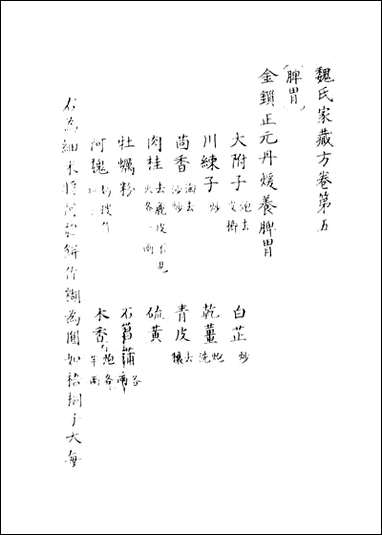 魏氏家藏方卷第五
脾胃
金鎖正元丹煖養脾胃
大附子炮去皮臍 白芷炒
川練子炒 乾薑炮洗
茴香淘去沙炒 青皮去穰
肉桂去麄皮不見火各一兩 硫黃
牡蠣粉 石菖蒲
訶子炮 木香各半兩
右為細末 糊為圓如梧桐子大每